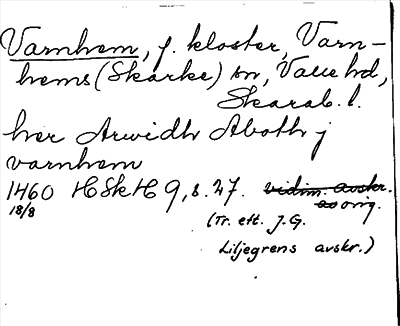 Varnhem, f. kloster, Varn-
hems (Skarke) sn, Valle hd,
Skarab. l.
her Arwidh Aboth j
varnhem
1460 HSkH 9, s. 27. vidim. avskr.
18/8 av orig.
(Tr. eft. J.G.
Liljegrens avskr.)